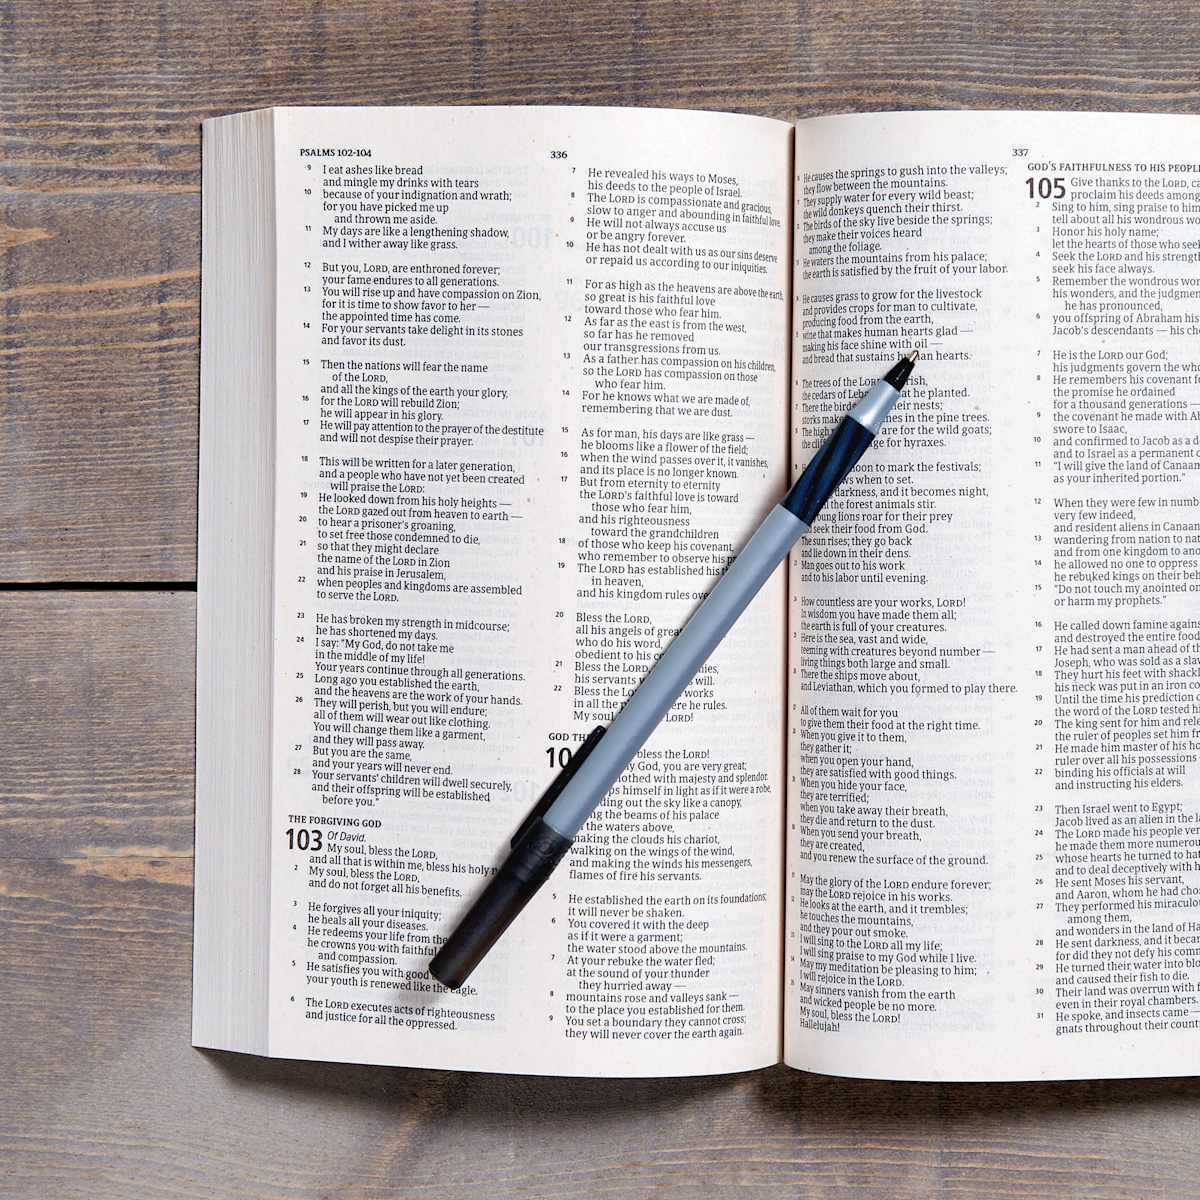 PSALMS 102-104
336
9 I eat ashes like bread
and mingle my drinks with tears
10 because of your indignation and wrath;
for you have picked me up
and thrown me aside.
11 My days are like a lengthening shadow,
and I wither away like grass.
12 But you, LORD, are enthroned forever;
your fame endures to all generations.
13 You will rise up and have compassion on Zion,
for it is time to show favor to her —
the appointed time has come.
14 For your servants take delight in its stones
and favor its dust.
15 Then the nations will fear the name
of the LORD,
and all the kings of the earth your glory,
16 for the LORD will rebuild Zion;
he will appear in his glory.
17 He will pay attention to the prayer of the destitute
and will not despise their prayer.
18 This will be written for a later generation,
and a people who have not yet been created
will praise the LORD:
19 He looked down from his holy heights —
the LORD gazed out from heaven to earth —
20 to hear a prisoner's groaning,
to set free those condemned to die,
21 so that they might declare
the name of the LORD in Zion
and his praise in Jerusalem,
22 when peoples and kingdoms are assembled
to serve the LORD.
23 He has broken my strength in midcourse;
he has shortened my days.
24 I say: "My God, do not take me
in the middle of my life!
Your years continue through all generations.
25 Long ago you established the earth,
and the heavens are the work of your hands.
26 They will perish, but you will endure;
all of them will wear out like clothing.
You will change them like a garment,
and they will pass away.
27 But you are the same,
and your years will never end.
28 Your servants' children will dwell securely,
and their offspring will be established
before you."
THE FORGIVING GOD
103 Of David.
My soul, bless the LORD,
and all that is within me, bless his holy
2 My soul, bless the LORD,
and do not forget all his benefits.
3 He forgives all your iniquity;
he heals all your diseases.
4 He redeems your life from the
he crowns you with faithful
and compassion.
5 He satisfies you with good
your youth is renewed like the eagle.
6 The LORD executes acts of righteousness
and justice for all the oppressed.
7 He revealed his ways to Moses,
his deeds to the people of Israel.
8 The LORD is compassionate and gracious,
slow to anger and abounding in faithful love.
9 He will not always accuse us
or be angry forever.
10 He has not dealt with us as our sins deserve
or repaid us according to our iniquities.
11 For as high as the heavens are above the earth,
so great is his faithful love
toward those who fear him.
12 As far as the east is from the west,
so far has he removed
our transgressions from us.
13 As a father has compassion on his children,
so the LORD has compassion on those
who fear him.
14 For he knows what we are made of,
remembering that we are dust.
15 As for man, his days are like grass —
he blooms like a flower of the field;
16 when the wind passes over it, it vanishes,
and its place is no longer known.
17 But from eternity to eternity
the LORD's faithful love is toward
those who fear him,
and his righteousness
toward the grandchildren
18 of those who keep his covenant,
who remember to observe his
19 The LORD has established his
in heaven,
and his kingdom rules
20 Bless the LORD,
all his angels of great
who do his word,
obedient to his
21 Bless the LORD,
his servants will.
22 Bless the works
in all the where he rules.
My soul, LORD!
GOD
bless the LORD!
God, you are very great;
clothed with majesty and splendor.
himself in light as if it were a robe,
out the sky like a canopy,
the beams of his palace
the waters above,
making the clouds his chariot,
walking on the wings of the wind,
4 and making the winds his messengers,
flames of fire his servants.
5 He established the earth on its foundations;
it will never be shaken.
6 You covered it with the deep
as if it were a garment;
the water stood above the mountains.
7 At your rebuke the water fled;
at the sound of your thunder
they hurried away —
8 mountains rose and valleys sank —
to the place you established for them.
9 You set a boundary they cannot cross;
they will never cover the earth again.
337
He causes the springs to gush into the valleys;
they flow between the mountains.
They supply water for every wild beast;
the wild donkeys quench their thirst.
The birds of the sky live beside the springs;
they make their voices heard
among the foliage.
He waters the mountains from his palace;
the earth is satisfied by the fruit of your labor.
He causes grass to grow for the livestock
and provides crops for man to cultivate,
producing food from the earth,
wine that makes human hearts glad —
making his face shine with oil —
and bread that sustains human hearts.
The trees of the LORD
the cedars of that he planted.
There the birds their nests;
storks make in the pine trees.
The high are for the wild goats;
the for hyraxes.
moon to mark the festivals;
when to set.
darkness, and it becomes night,
the forest animals stir.
young lions roar for their prey
seek their food from God.
The sun rises; they go back
and lie down in their dens.
Man goes out to his work
and to his labor until evening.
How countless are your works, LORD!
In wisdom you have made them all;
the earth is full of your creatures.
Here is the sea, vast and wide,
teeming with creatures beyond number —
living things both large and small.
There the ships move about,
and Leviathan, which you formed to play there.
All of them wait for you
to give them their food at the right time.
When you give it to them,
they gather it;
when you open your hand,
they are satisfied with good things.
When you hide your face,
they are terrified;
when you take away their breath,
they die and return to the dust.
When you send your breath,
they are created,
and you renew the surface of the ground.
May the glory of the LORD endure forever;
may the LORD rejoice in his works.
He looks at the earth, and it trembles;
he touches the mountains,
and they pour out smoke.
I will sing to the LORD all my life;
I will sing praise to my God while I live.
May my meditation be pleasing to him;
I will rejoice in the LORD.
May sinners vanish from the earth
and wicked people be no more.
My soul, bless the LORD!
Hallelujah!
GOD'S FAITHFULNESS TO HIS PEOPLE
105 Give thanks to the LORD,
proclaim his deeds among
2 Sing to him, sing praise to him
tell about all his wondrous
3 Honor his holy name;
let the hearts of those who seek
4 Seek the LORD and his strength
seek his face always.
5 Remember the wondrous
his wonders, and the
he has pronounced,
6 you offspring of Abraham his
Jacob's descendants — his
7 He is the LORD our God;
his judgments govern the
8 He remembers his covenant
the promise he ordained
for a thousand generations —
9 the covenant he made with
swore to Isaac,
10 and confirmed to Jacob as a
and to Israel as a permanent
11 "I will give the land of Canaan
as your inherited portion."
12 When they were few in
very few indeed,
and resident aliens in Canaan
13 wandering from nation to
and from one kingdom to
14 he allowed no one to oppress
he rebuked kings on their
15 "Do not touch my anointed
or harm my prophets."
16 He called down famine
and destroyed the entire food
17 He had sent a man ahead of
Joseph, who was sold as a
18 They hurt his feet with
his neck was put in an iron
19 Until the time his prediction
the word of the LORD tested
20 The king sent for him and
the ruler of peoples set him
21 He made him master of his
ruler over all his possessions
22 binding his officials at will
and instructing his elders.
23 Then Israel went to Egypt;
Jacob lived as an alien in the
24 The LORD made his people
he made them more
25 whose hearts he turned to
and to deal deceptively with
26 He sent Moses his servant,
and Aaron, whom he had
27 They performed his
among them,
and wonders in the land of
28 He sent darkness, and it
for did they not defy his
29 He turned their water into
and caused their fish to die.
30 Their land was overrun with
even in their royal chambers.
31 He spoke, and insects came —
gnats throughout their